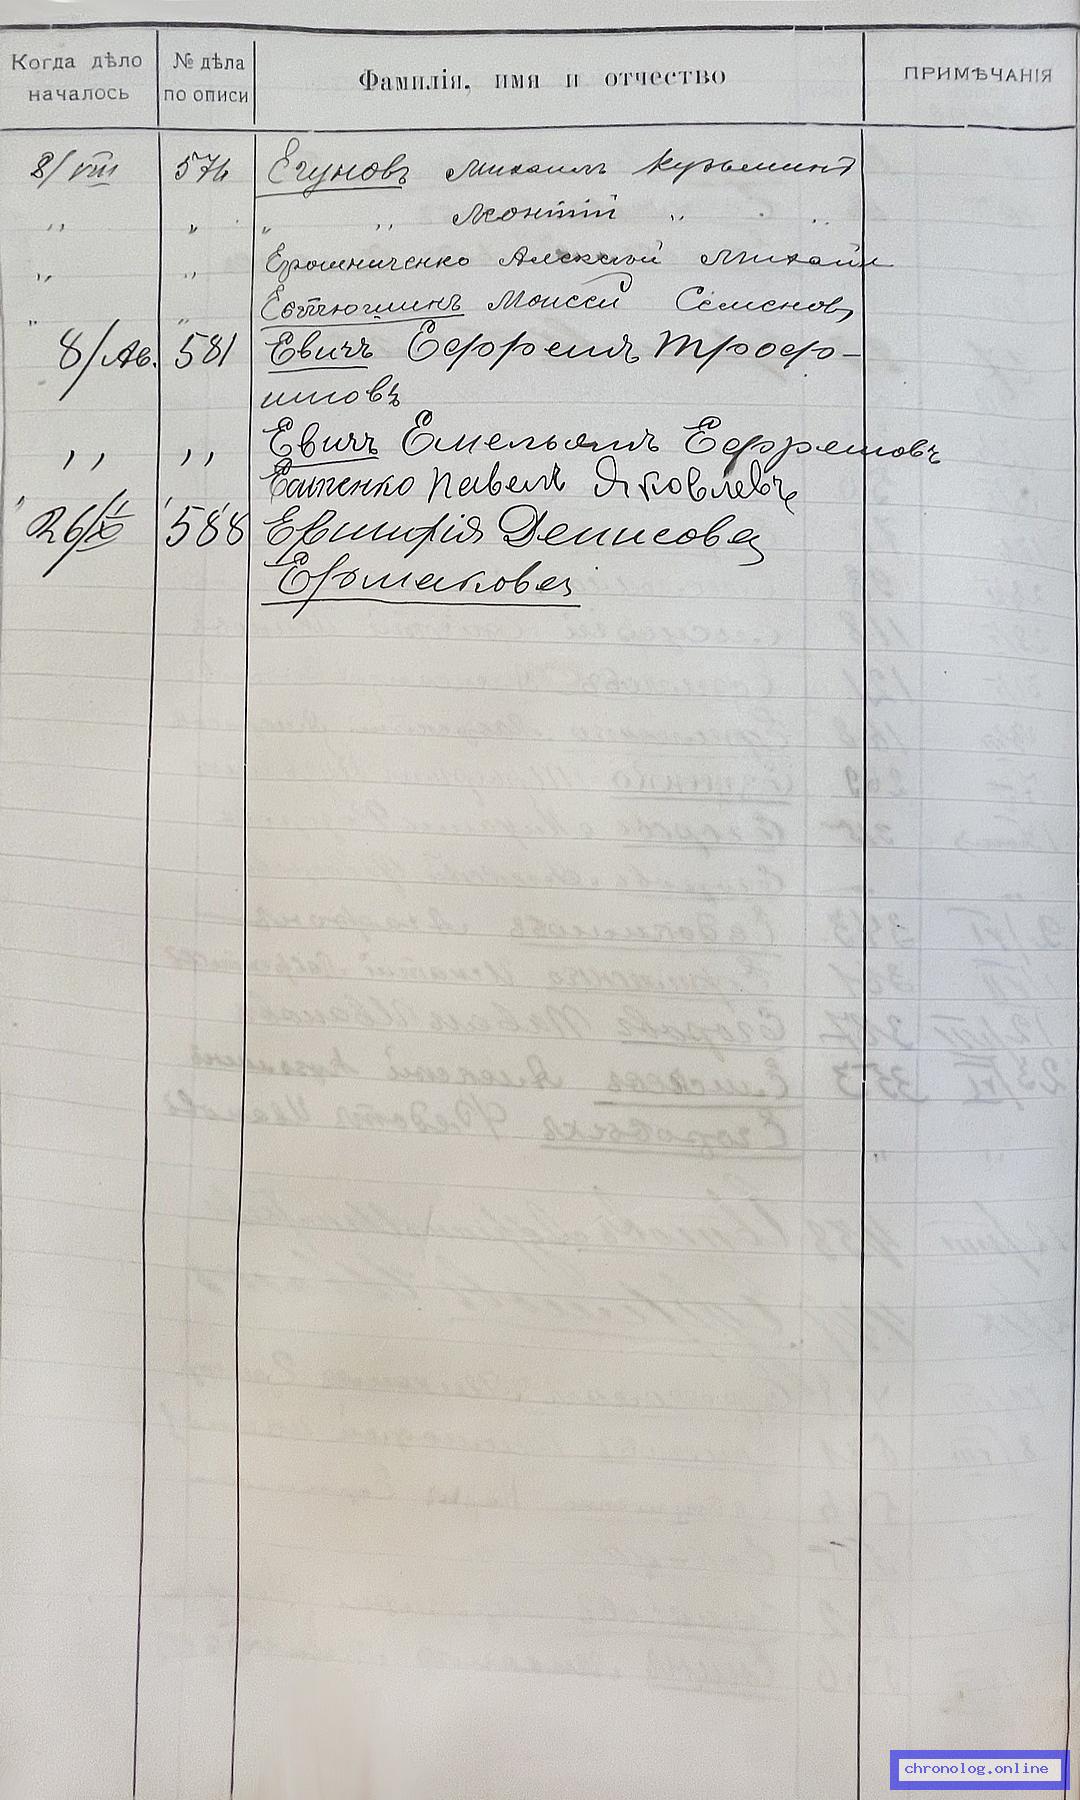 Когда дѣло началось № дѣла по описи Фамилія, имя и отчество ПРИМѢЧАНІЯ
8/VIII 576 Егуновъ Михаилъ Кузьминъ
,, ,, ,, ,, Леонтій ,, ,,
,, ,, Ерошниченко Алексѣй Михайл
,, ,, Евтюгинъ Моисей Семеновъ
8/Ав. 581 Евичъ Ефремъ Троф-
имовъ
,, ,, Евичъ Емельянъ Ефремовъ
Есипенко Павелъ Яковлевъ
26/IX 588 Денисова
Ермакова
chronolog.online